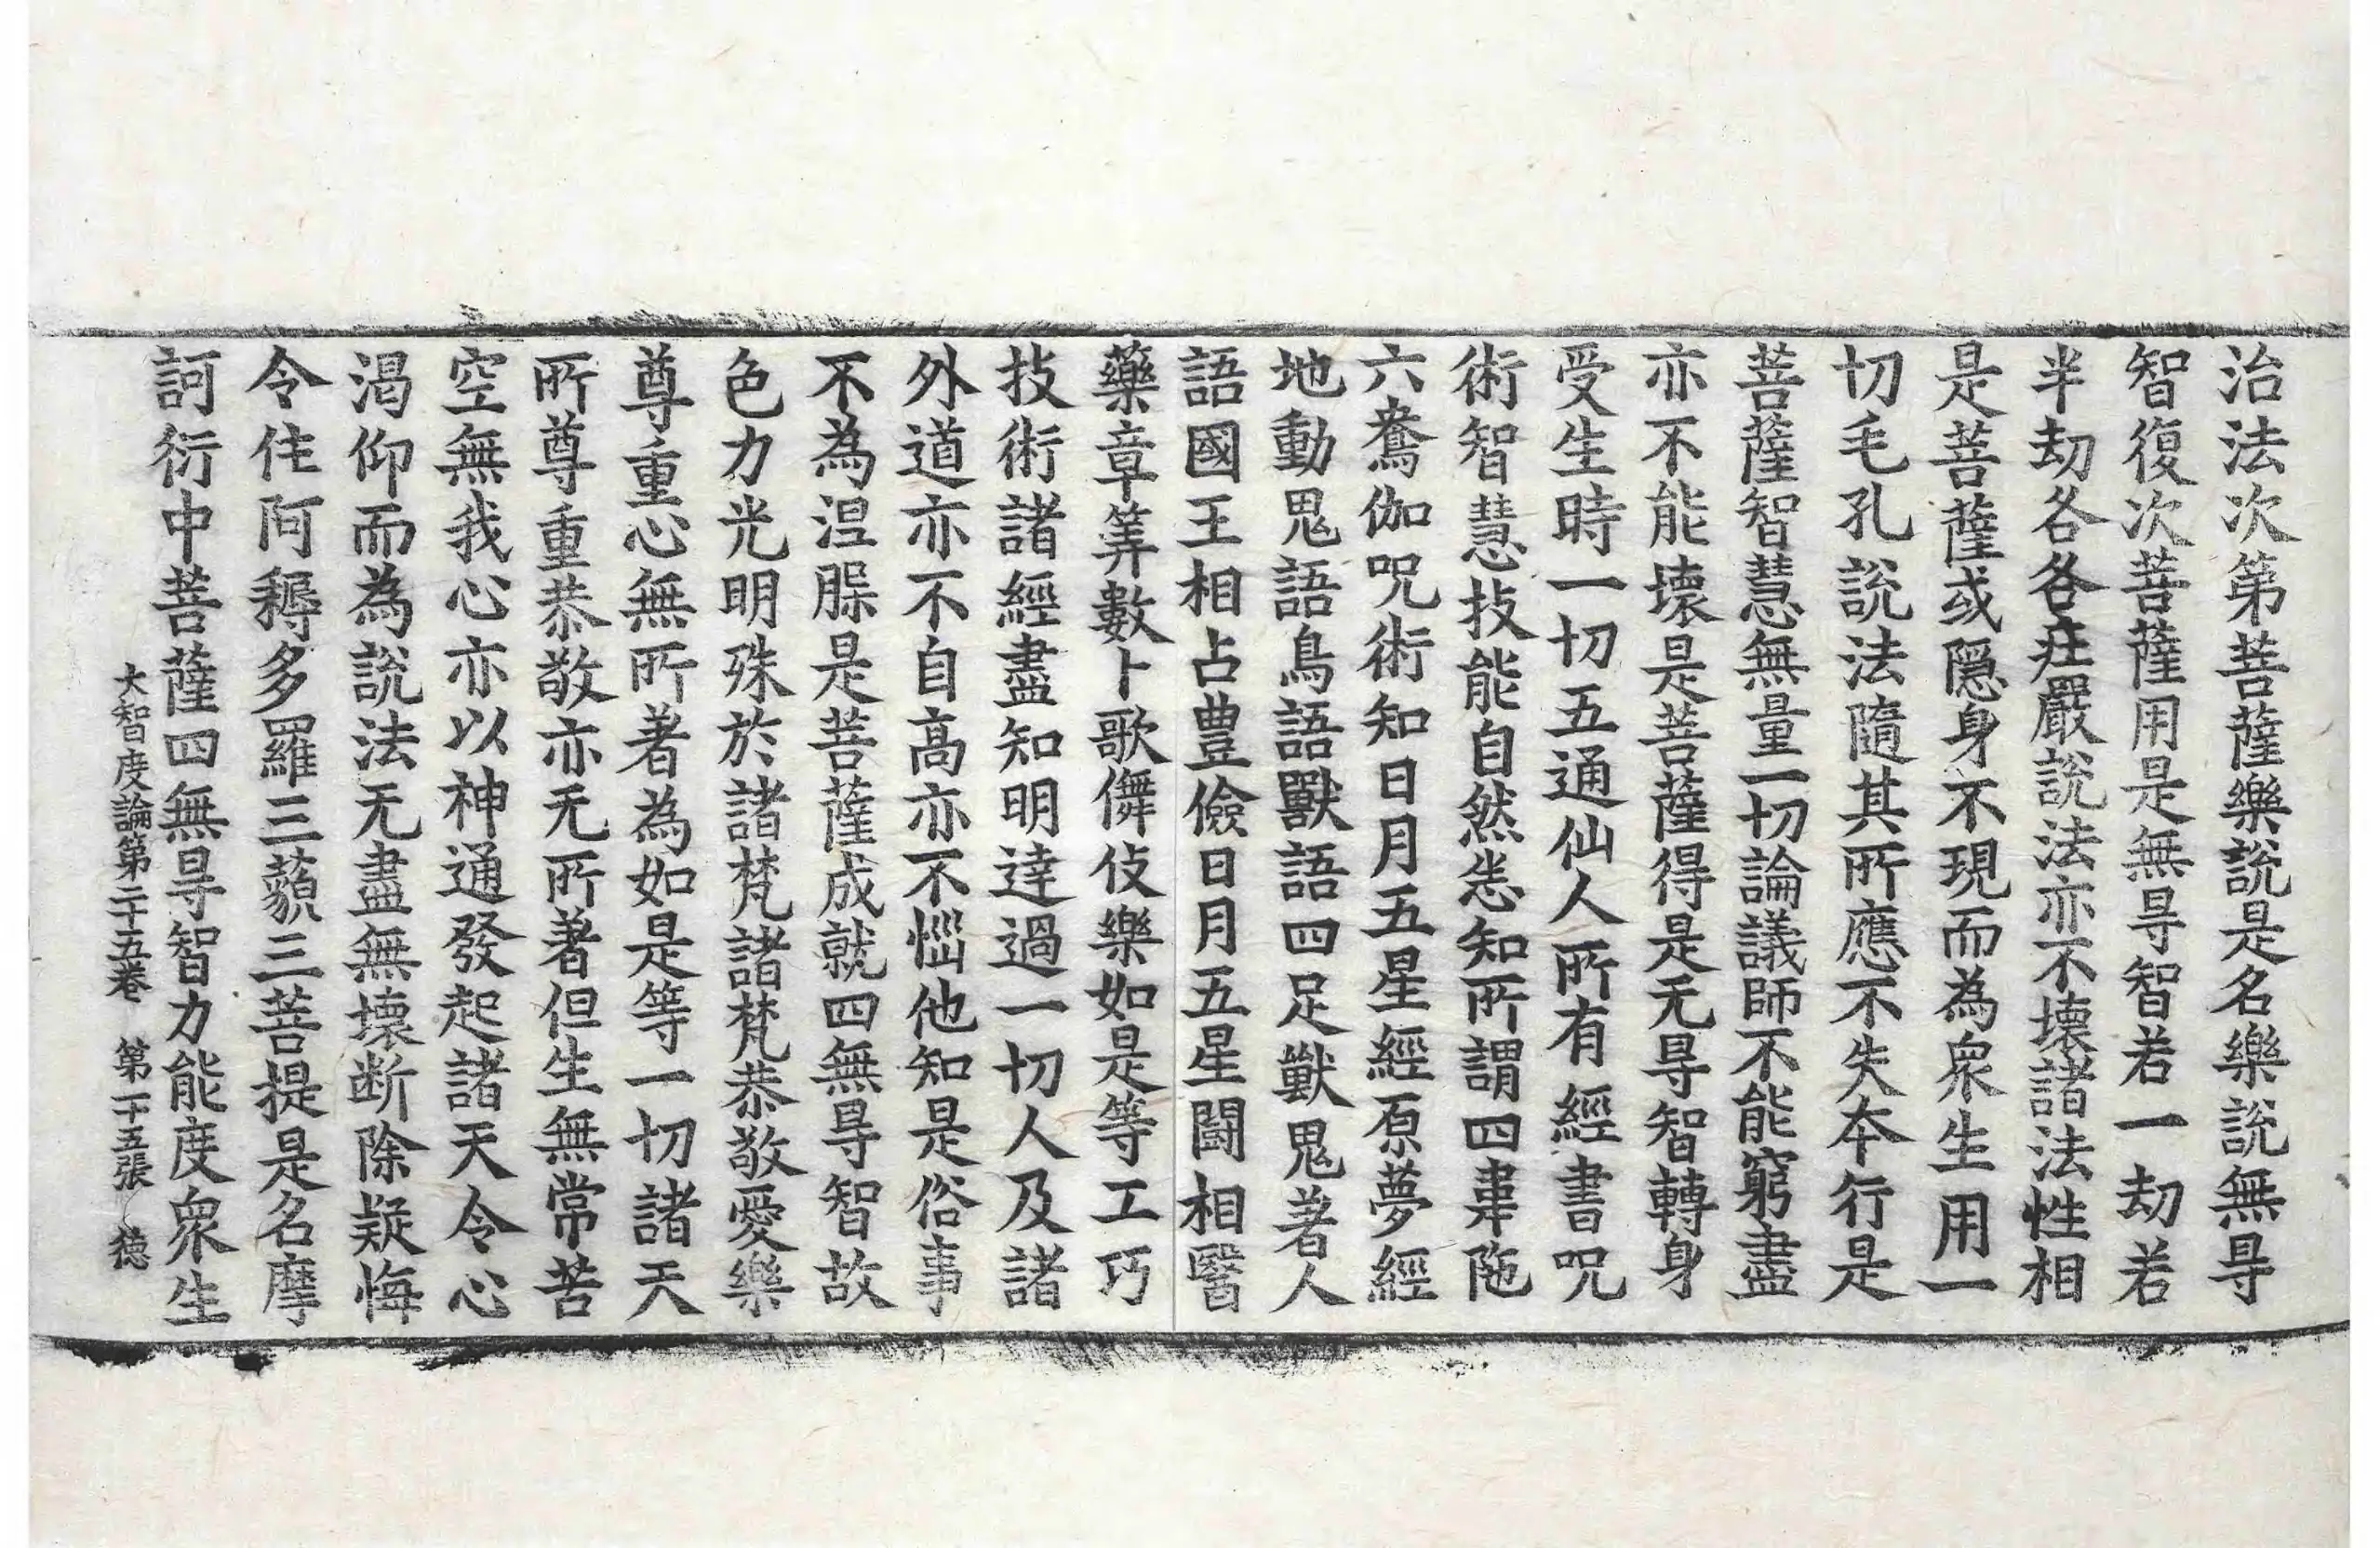 治法次第菩薩樂說是名樂說無㝵
智復次菩薩用是無㝵智若一劫若
半劫各各㽵嚴說法亦不壞諸法性相
是菩薩或隱身不現而為衆生用一
切毛孔說法隨其所應不失本行是
菩薩智慧無量一切論議師不能窮盡
亦不能壞是菩薩得是无㝵智轉身
受生時一切五通仙人所有經書呪
術智慧技能自然悉知所謂四韋陁
六鴦伽呪術知日月五星經原夢經
地動鬼語鳥語獸語四足獸鬼著人
語國王相占豊儉日月五星鬪相醫
藥章筭數卜歌儛伎樂如是等工巧
技術諸經盡知明達過一切人及諸
外道亦不自高亦不惱他知是俗事
不為涅槃是菩薩成就四無㝵智故
色力光明殊於諸梵諸梵恭敬愛樂
尊重心無所著為如是等一切諸天
所尊重恭敬亦无所著但生無常苦
空無我心亦以神通發起諸天令心
渴仰而為說法无盡無壞断除疑悔
令住阿耨多羅三藐三菩提是名摩
訶衍中菩薩四無㝵智力能度衆生
大智度論第二十五卷　第二十五張　德